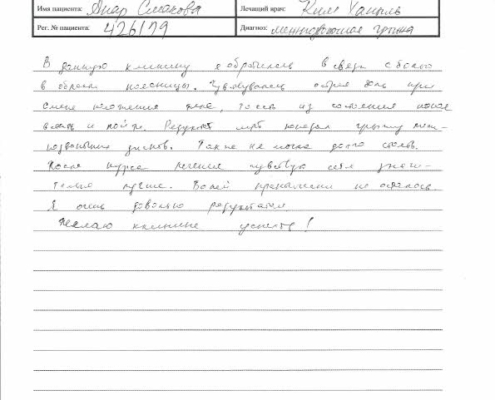 Имя пациента: Анар Смакова Лечащий врач: Ким Ханиль
Рег. № пациента: 426/79 Диагноз: межпозвоночная грыжа
В данную клинику я обратилась в связи с болью
в области поясницы. Чувствовалась острая боль при
смене положения тела, то есть из состояния
и пойти. Результат мрт показал грыжу меж-
позвонковых дисков. Также не могла долго стоять.
После курса лечения чувствую себя значи-
тельно лучше. Болей практически не осталось.
Я очень довольна результатом
Желаю клинике успехов!